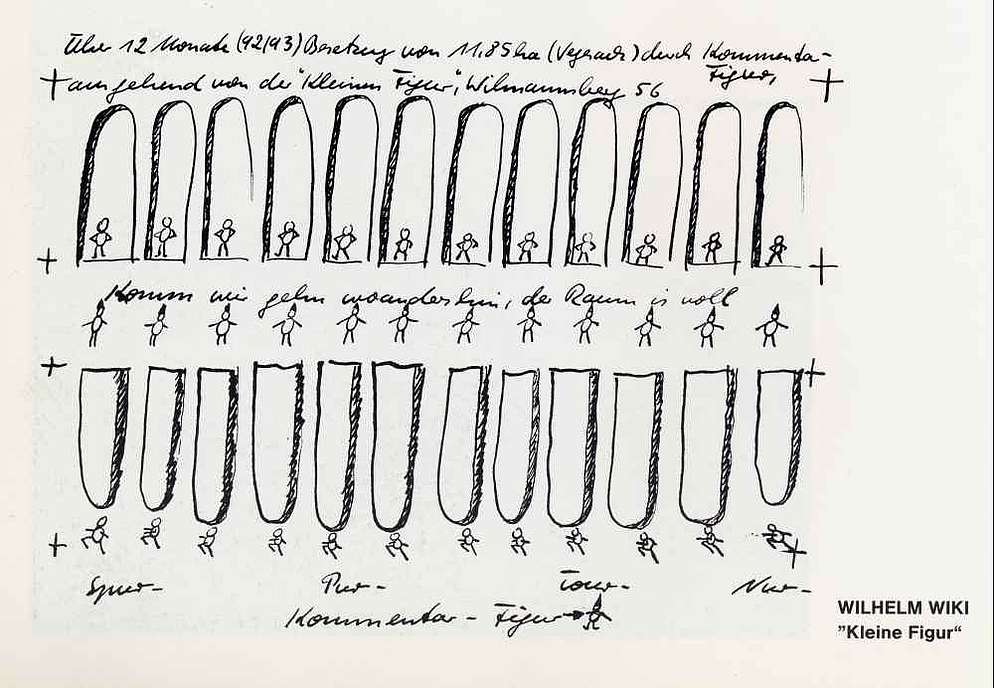 Über 12 Monate (92/93) Besetzung von 11,85 ha (Vegesack) durch Kommentar-
Figur,
ausgehend von der "Kleinen Figur", Wilmannsberg 56
Komm wir gehn woanders hin, der Raum is voll
Spur- Pur- Tour- Nur-
Kommentar- Figur
WILHELM WIKI
"Kleine Figur"